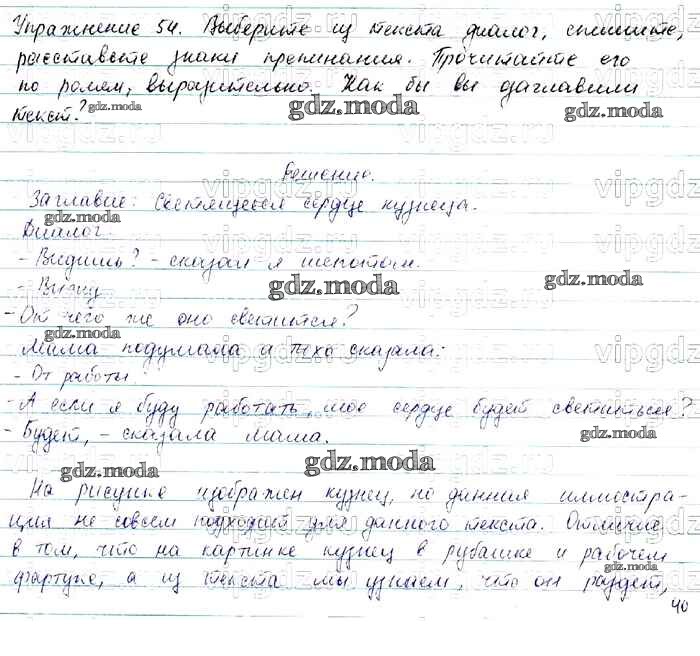 Упражнение 54. Выберите из текста диалог, спишите,
расставьте знаки препинания. Прочитайте его
по ролям, выразительно. Как бы вы озаглавили
текст?
gdz.moda
gdz.moda
gdz.moda
Решение.
Заглавие: Светящееся сердце кузнеца.
gdz.moda
Диалог
- Видишь? - сказал я шепотом.
- Вижу
gdz.moda
gdz.moda
- От чего же оно светится?
gdz.moda
Мама подумала и тихо сказала:
- От работы.
- А если я буду работать, мое сердце будет светиться?
- Будет, - сказала мама.
gdz.moda
gdz.moda
gdz.moda
На рисунке изображен кузнец, но данная иллюстра-
ция не совсем подходит для данного текста. Отличие
в том, что на картинке кузнец в рубашке и рабочем
фартуке, а из текста мы узнаем, что он раздет,
40